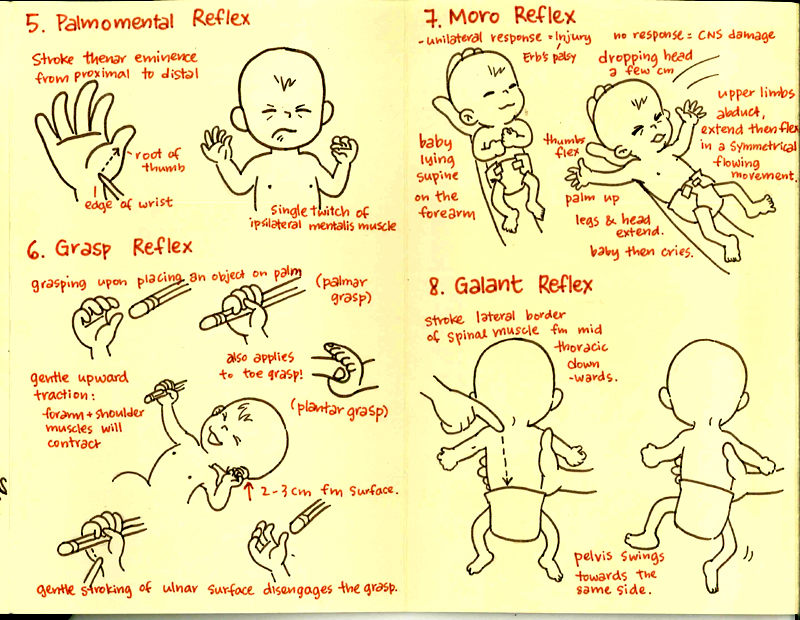 5. Palmomental Reflex
Stroke thenar eminence
from proximal to distal
root of
thumb
edge of wrist
single twitch of
ipsilateral mentalis muscle
6. Grasp Reflex
grasping upon placing an object on palm
(palmar
grasp)
also applies
to toe grasp!
(plantar grasp)
gentle upward
traction:
forarm + shoulder
muscles will
contract
↑ 2-3 cm fm surface.
gentle stroking of ulnar surface disengages the grasp.
7. Moro Reflex
- unilateral response = injury
Erb's palsy
no response = CNS damage
dropping head
a few cm
upper limbs
abduct,
extend then flex
in a symmetrical
flowing
movement.
baby
lying
supine
on the
forearm
thumbs
flex
palm up
legs & head
extend.
baby then cries.
8. Galant Reflex
stroke lateral border
of spinal muscle fm mid
thoracic
down
-wards.
pelvis swings
towards the
same side.